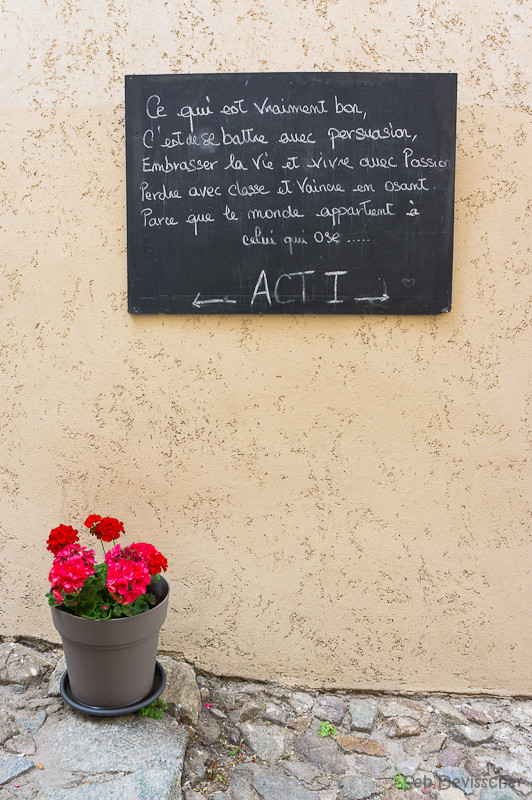 Ce qui est vraiment bon,
C'est de se battre avec persuasion,
Embrasser la vie et vivre avec Passion
Perdre avec classe et Vaincre en osant.
Parce que le monde appartient à
celui qui ose .....
← ACT I →
Seb Devisscher